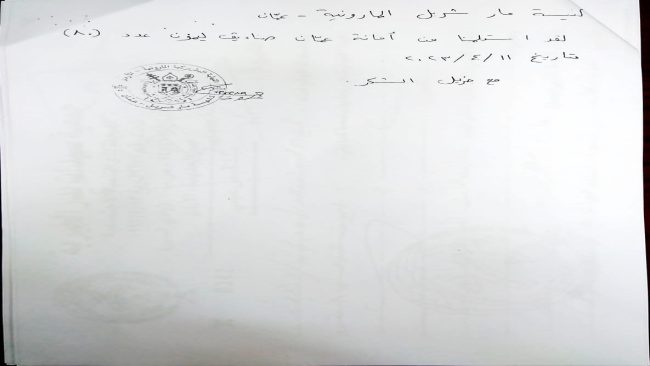 كنيسة مار شربل المارونية - عمّان
لقد استلمنا من أمانة عمّان صناديق ليمون عدد (٨٠)
بتاريخ ١١/٤/٢٠٢٣
مع جزيل الشكر.